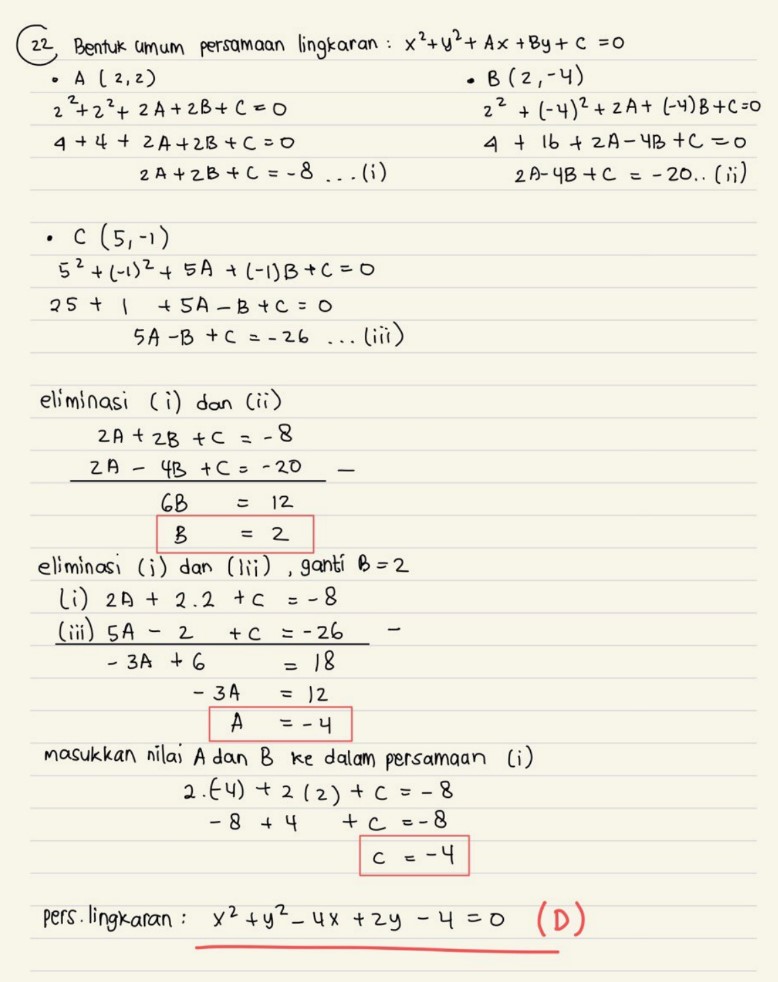 22 Bentuk umum persamaan lingkaran : x²+y²+ Ax + By + C = 0
• A (2,2)
2²+2²+ 2A+2B+C = 0
4 + 4 + 2A+2B+C = 0
2A+2B+C = -8 ...(i)
• B (2,-4)
2² + (-4)² + 2A + (-4)B+C=0
4 + 16 + 2A - 4B + C = 0
2A-4B+C = -20.. (ii)
• C (5,-1)
5² + (-1)² + 5A + (-1)B+C = 0
25 + 1 + 5A - B + C = 0
5A - B + C = -26 ... (iii)
eliminasi (i) dan (ii)
2A + 2B + C = -8
2A - 4B + C = -20 —
6B = 12
B = 2
eliminasi (i) dan (iii) , ganti B = 2
(i) 2A + 2.2 + C = -8
(iii) 5A - 2 + C = -26 —
- 3A + 6 = 18
- 3A = 12
A = -4
masukkan nilai A dan B ke dalam persamaan (i)
2.(-4) + 2(2) + C = -8
-8 + 4 + C = -8
C = -4
pers. lingkaran : x² + y² - 4x + 2y - 4 = 0 (D)